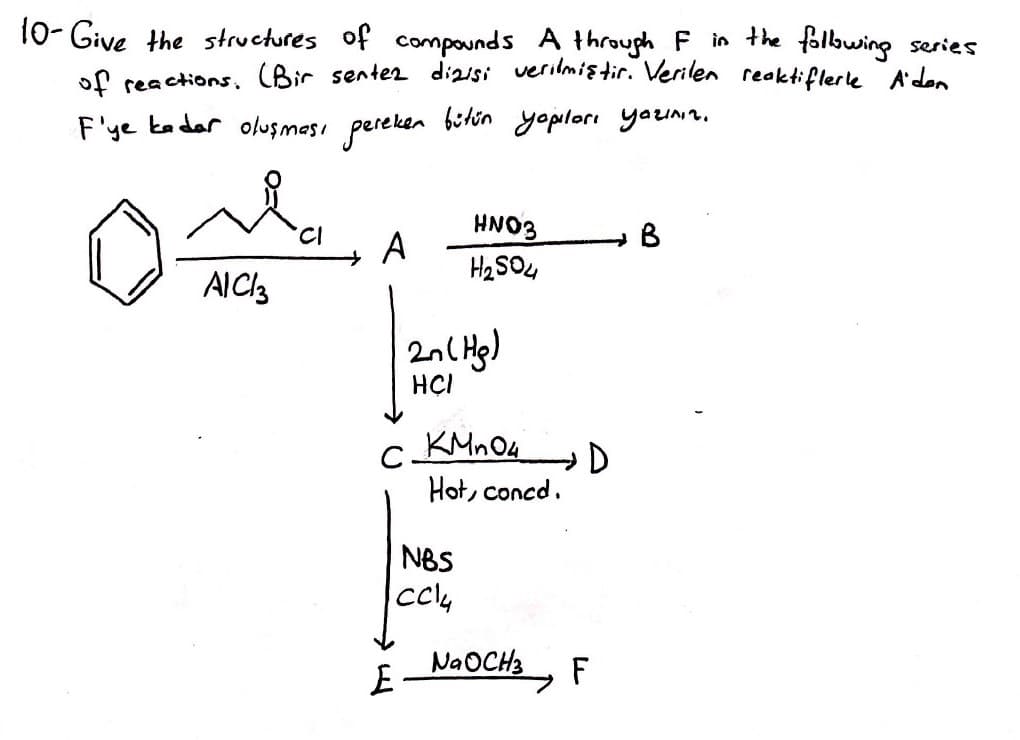 10- Give the structures of compounds A through F in the following series
of reactions. (Bir sentez dizisi verilmiştir. Verilen reaktiflerle A'dan
F'ye kadar oluşması gereken bütün yapıları yazınız.
O
Cl
AlCl3
A
HNO3
H2SO4
B
Zn(Hg)
HCl
C KMnO4 D
Hot, concd.
NBS
CCl4
E NaOCH3 F